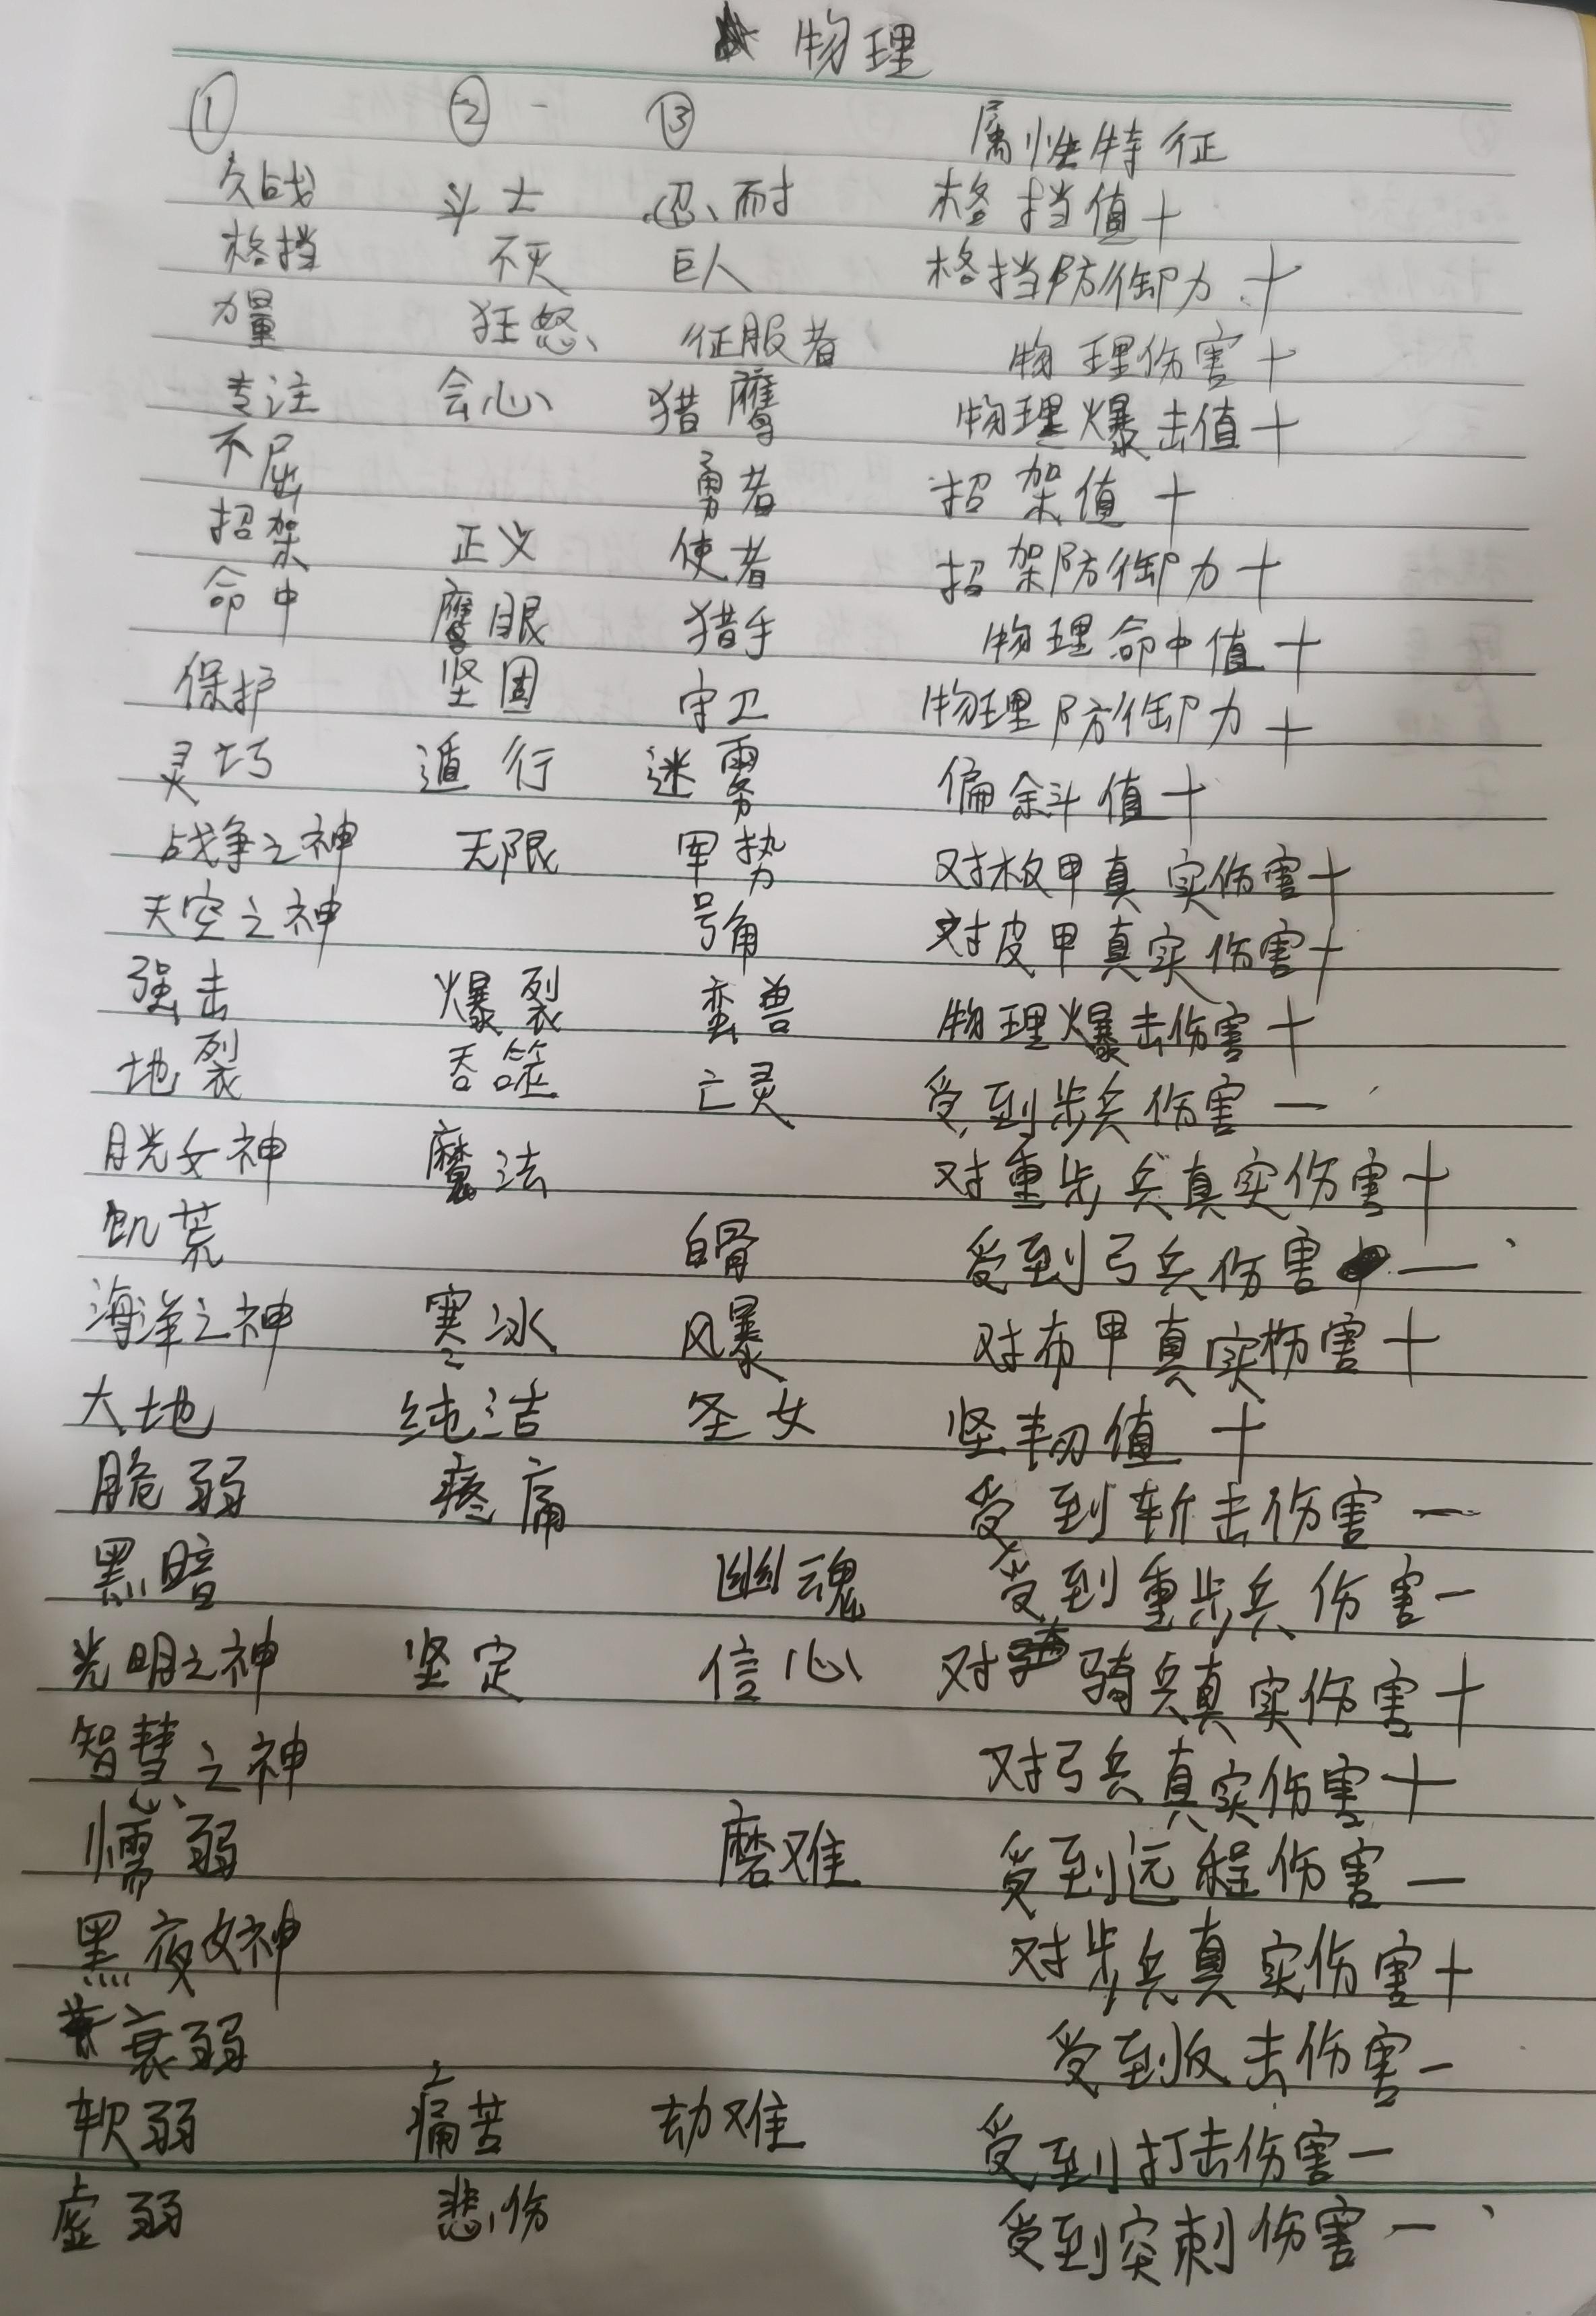 物理
① ② ③ 属性特征
久战 斗士 忍耐 格挡值+
格挡 不灭 巨人 格挡防御力+
力量 狂怒 征服者 物理伤害+
专注 会心 猎鹰 物理爆击值+
不屈 勇者 招架值+
招架 正义 使者 招架防御力+
命中 鹰眼 猎手 物理命中值+
保护 坚固 守卫 物理防御力+
灵巧 遁行 迷雾 偏斜值+
战争之神 无限 军势 对板甲真实伤害+
天空之神 号角 对皮甲真实伤害+
强击 爆裂 蛮兽 物理爆击伤害+
地裂 吞噬 亡灵 受到步兵伤害一
月光女神 魔法 对重步兵真实伤害+
饥荒 白骨 受到弓兵伤害一
海洋之神 寒冰 风暴 对布甲真实伤害+
大地 纯洁 圣女 坚韧值+
脆弱 疼痛 受到斩击伤害一
黑暗 幽魂 受到重步兵伤害一
光明之神 坚定 信心 对骑兵真实伤害+
智慧之神 对弓兵真实伤害+
懦弱 磨难 受到远程伤害一
黑夜女神 对步兵真实伤害+
衰弱 受到反击伤害一
软弱 痛苦 劫难 受到打击伤害一
虚弱 悲伤 受到突刺伤害一